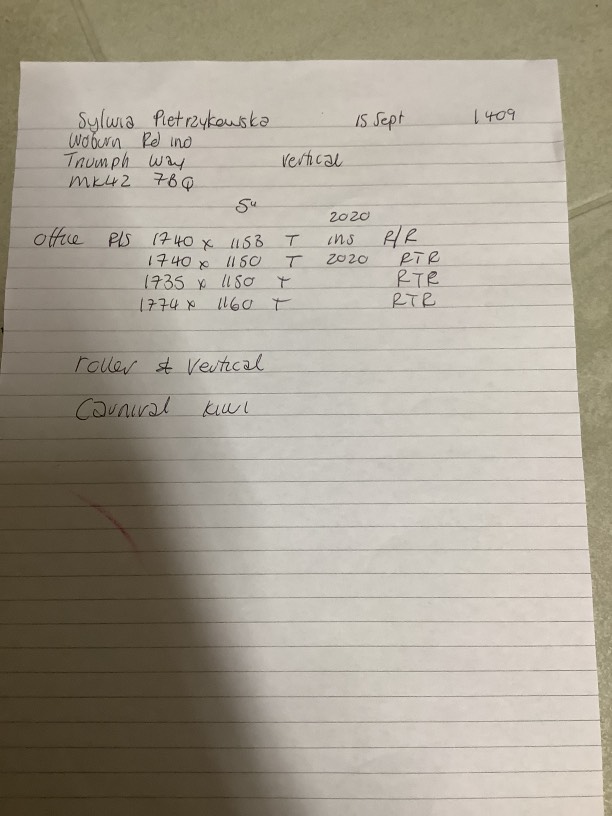 Sylwia Pietrzykowska 15 Sept 1409
Woburn Rd ind
Triumph Way Vertical
MK42 7BQ
5"
2020
Office 1740 x 1153 T ins R/R
1740 x 1150 T 2020 RTR
1735 x 1150 T RTR
1774 x 1160 T RTR
roller & Vertical
Carnival kiwi